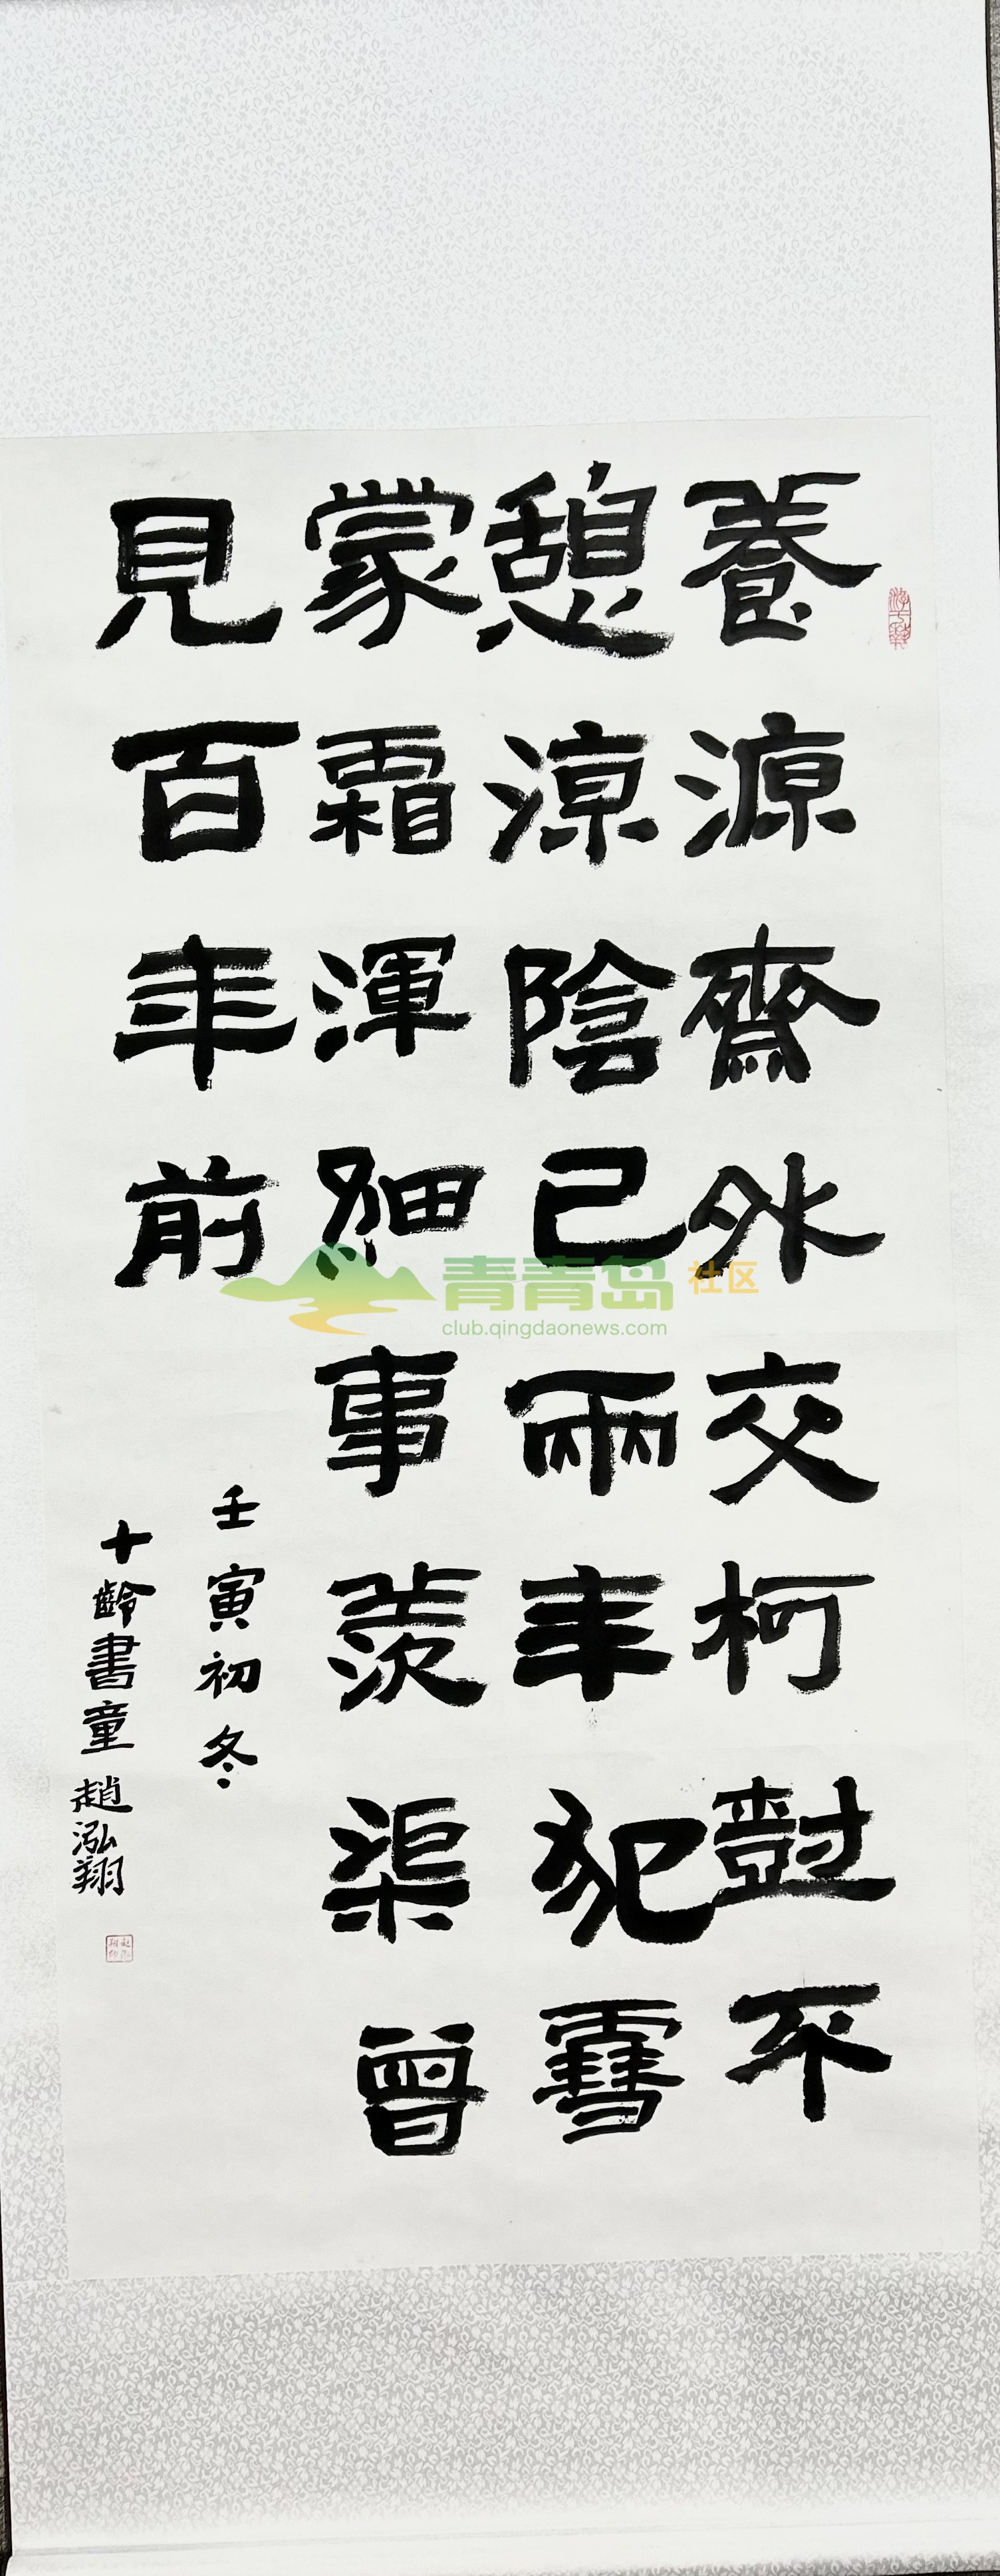 養源齋外交柯對不
憩涼陰已兩年犯雪
蒙霜渾細事羨渠曾
見百年前
壬寅初冬
十齡書童趙泓翔
青青岛社区
club.qingdaonews.com